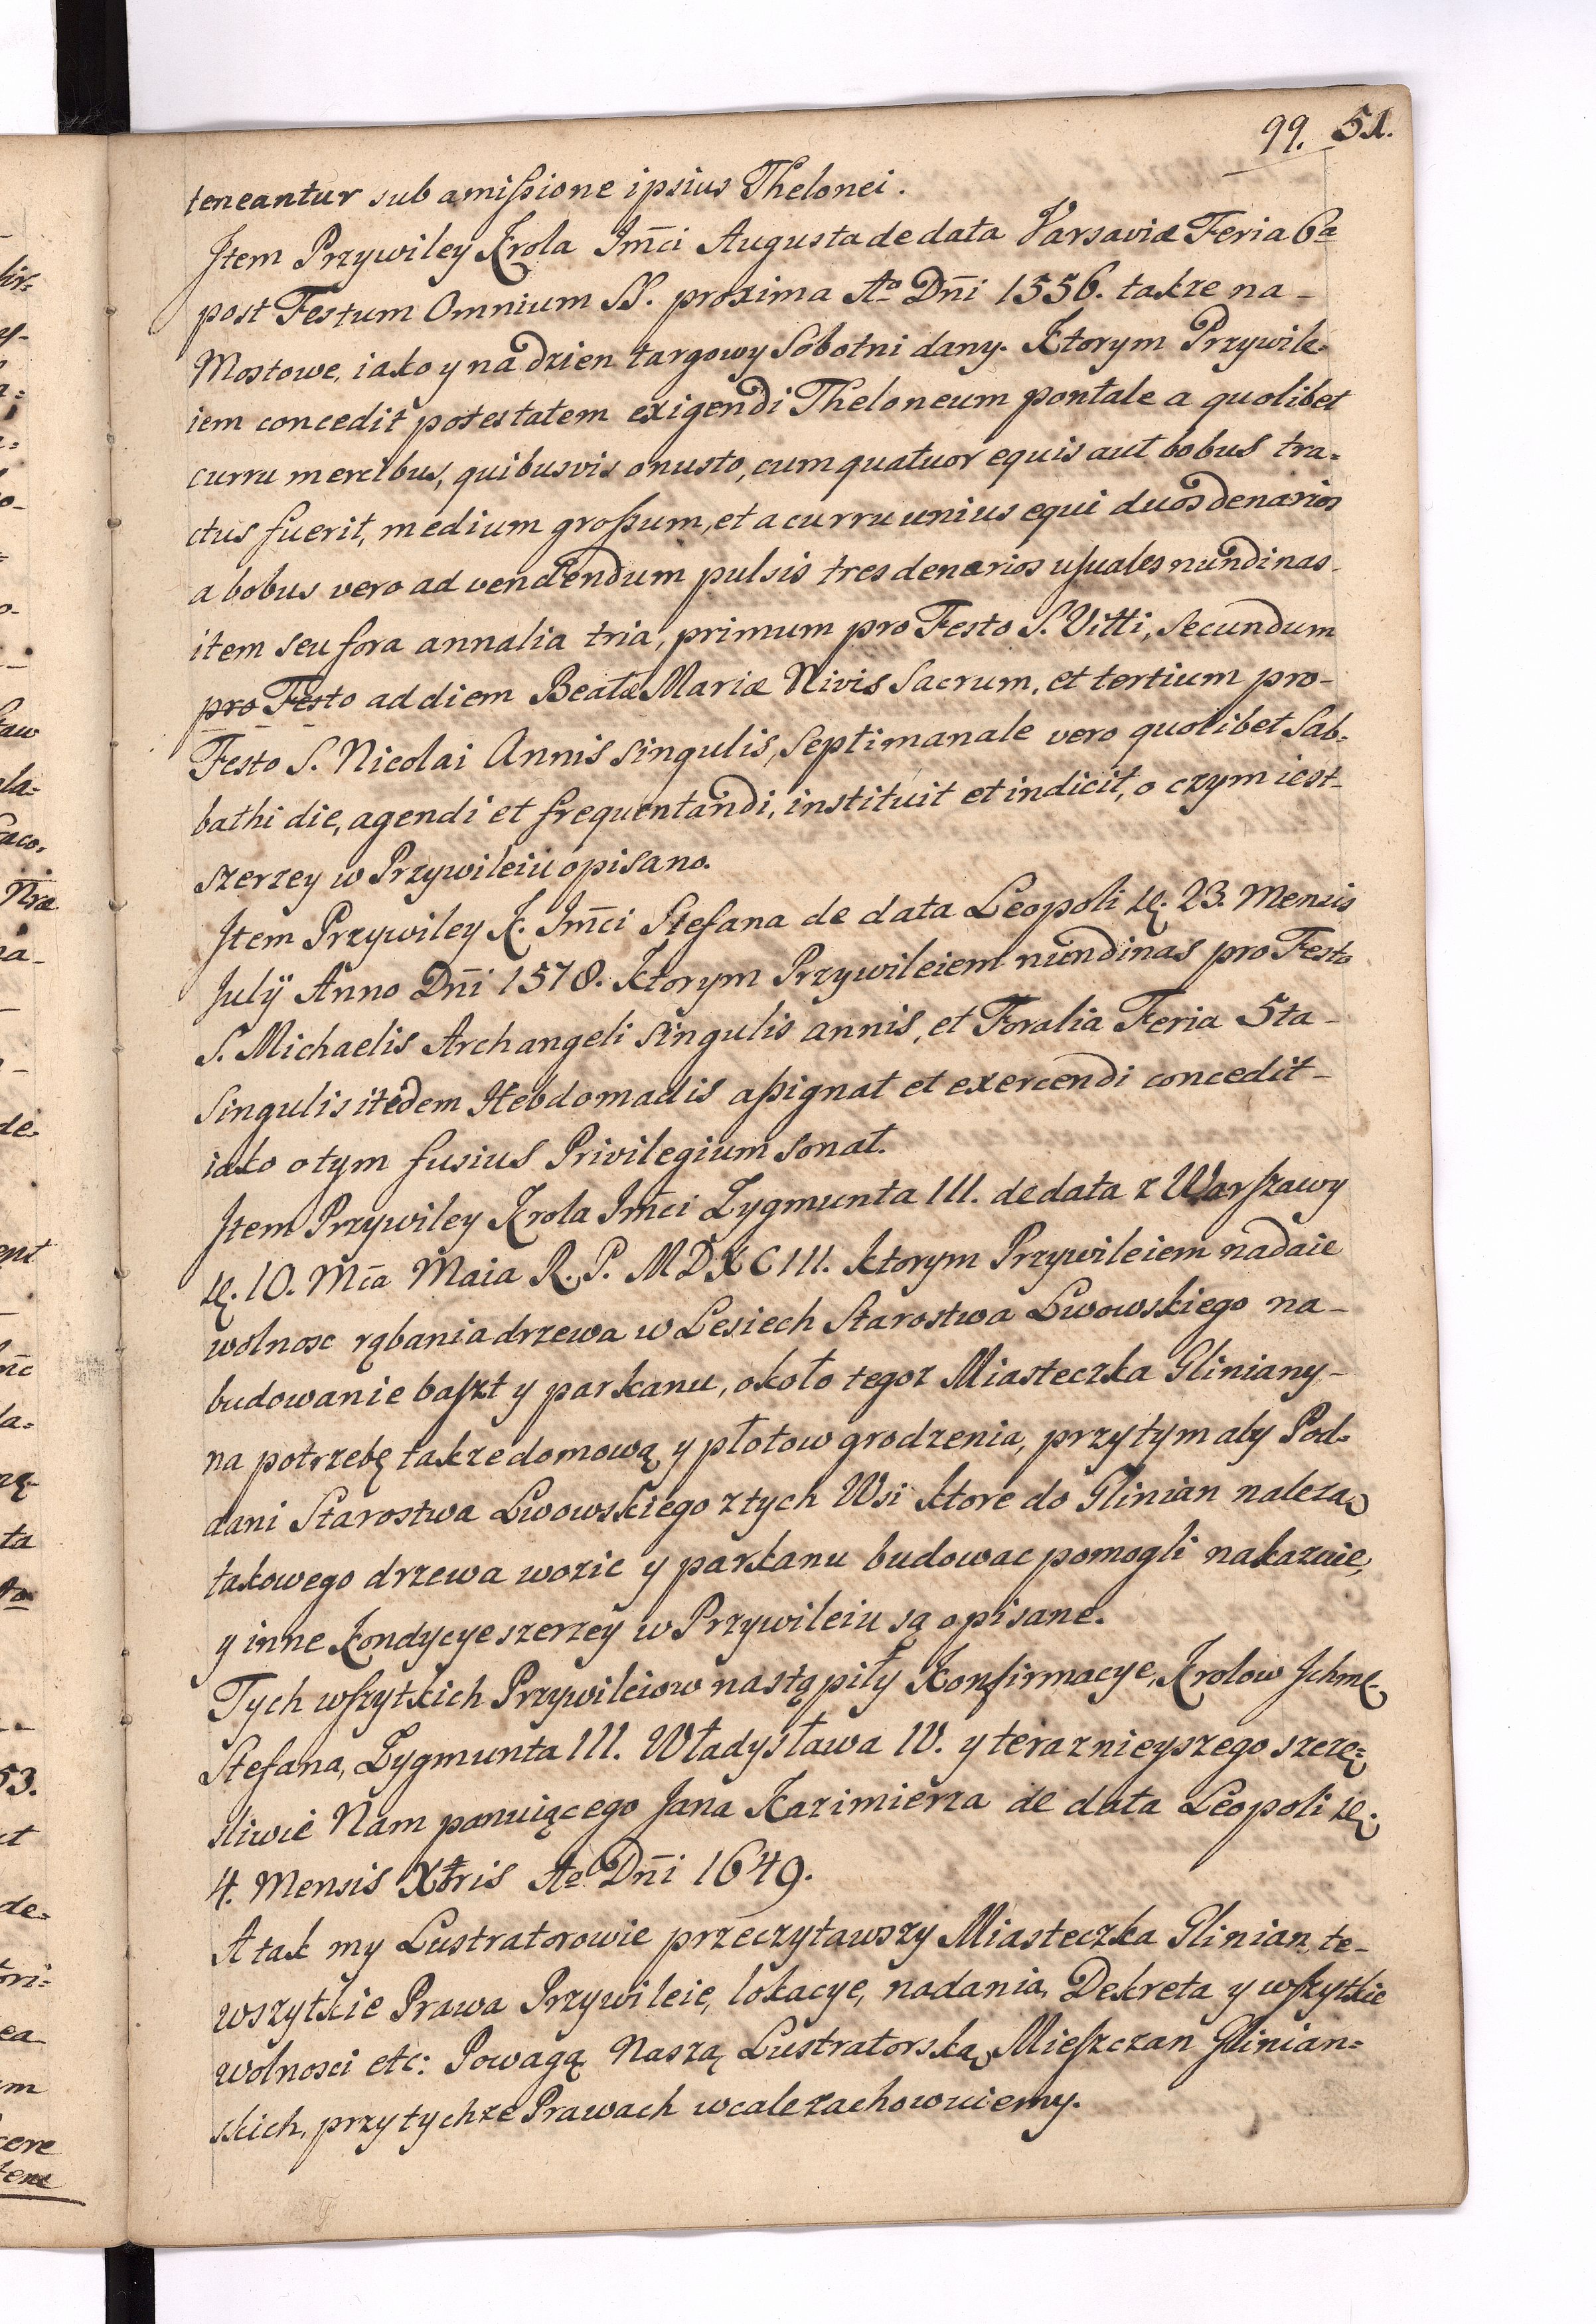 99. 51.
teneantur sub amißione ipsius Thelonei.
Jtem Przywiley Krola Jm̄ci Augusta de data Varsaviæ Feria 6a
post Festum Omnium SS. proxima Ao Dn̄i 1556. takze na-
Mostowe, iako y na dzien targowy Sobotni dany. Ktorym Przywile-
iem concedit potestatem exigendi Theloneum pontale a quolibet
curru mercibus, quibusvis onusto, cum quatuor equis aut bobus tra-
ctus fuerit, medium großum, et a curru unius equi duos denarios
a bobus vero ad vendendum pulsis tres denarios usuales nundinas-
item seu fora annalia tria, primum pro Festo S. Vitti, Secundum
pro Festo ad diem Beatæ Mariæ Nivis Sacrum, et tertium pro-
Festo S. Nicolai Annis Singulis, Septimanale vero quolibet Sab-
bathi die, agendi et frequentandi, instituit et indicit, o czym iest-
szerzey w Przywileiu opisano.
Jtem Przywiley K. Jm̄ci Stefana de data Leopoli 23. Mensis
Julÿ Anno Dn̄i 1578. Ktorym Przywileiem nundinas pro Festo
S. Michaelis Archangeli Singulis annis, et Foralia Feria 5ta-
Singulis itedem Hebdomadis aßignat et exercendi concedit-
iako o tym fusius Privilegium sonat.
Jtem Przywiley Krola Jm̄ci Zygmunta III. de data z Warszawy
10. Mc̄a Maia R. P. MDXCIII. Ktorym Przywileiem nadaie
wolnosc rąbania drzewa w Lesiech Starostwa Lwowskiego na-
budowanie baszt y parkanu, około tegoz Miasteczka Gliniany-
na potrzebę takze domową y płotow grodzenia, przytym aby Pod-
dani Starostwa Lwowskiego z tych Wsi ktore do Glinian nalezą
takowego drzewa wozic y parkanu budowac pomogli nakazuie,
y inne Kondycye szerzey w Przywileiu są opisane.
Tych wszytkich Przywileiow nastąpiły Konfirmacye, Krolow Jchm
Stefana, Zygmunta III. Władysława IV. y teraznieyszego szczę-
sliwie Nam panuiącego Jana Kazimierza de data Leopoli
4. Mensis Xbris Ao Dn̄i 1649.
A tak my Lustratorowie przeczytawszy Miasteczka Glinian te-
wszytkie Prawa Przywileie, lokacye, nadania, Dekreta y wszytkie
wolnosci etc: Powagą Naszą Lustratorską, Mieszczan Glinian-
skich, przy tychze Prawach wcale zachowuiemy.